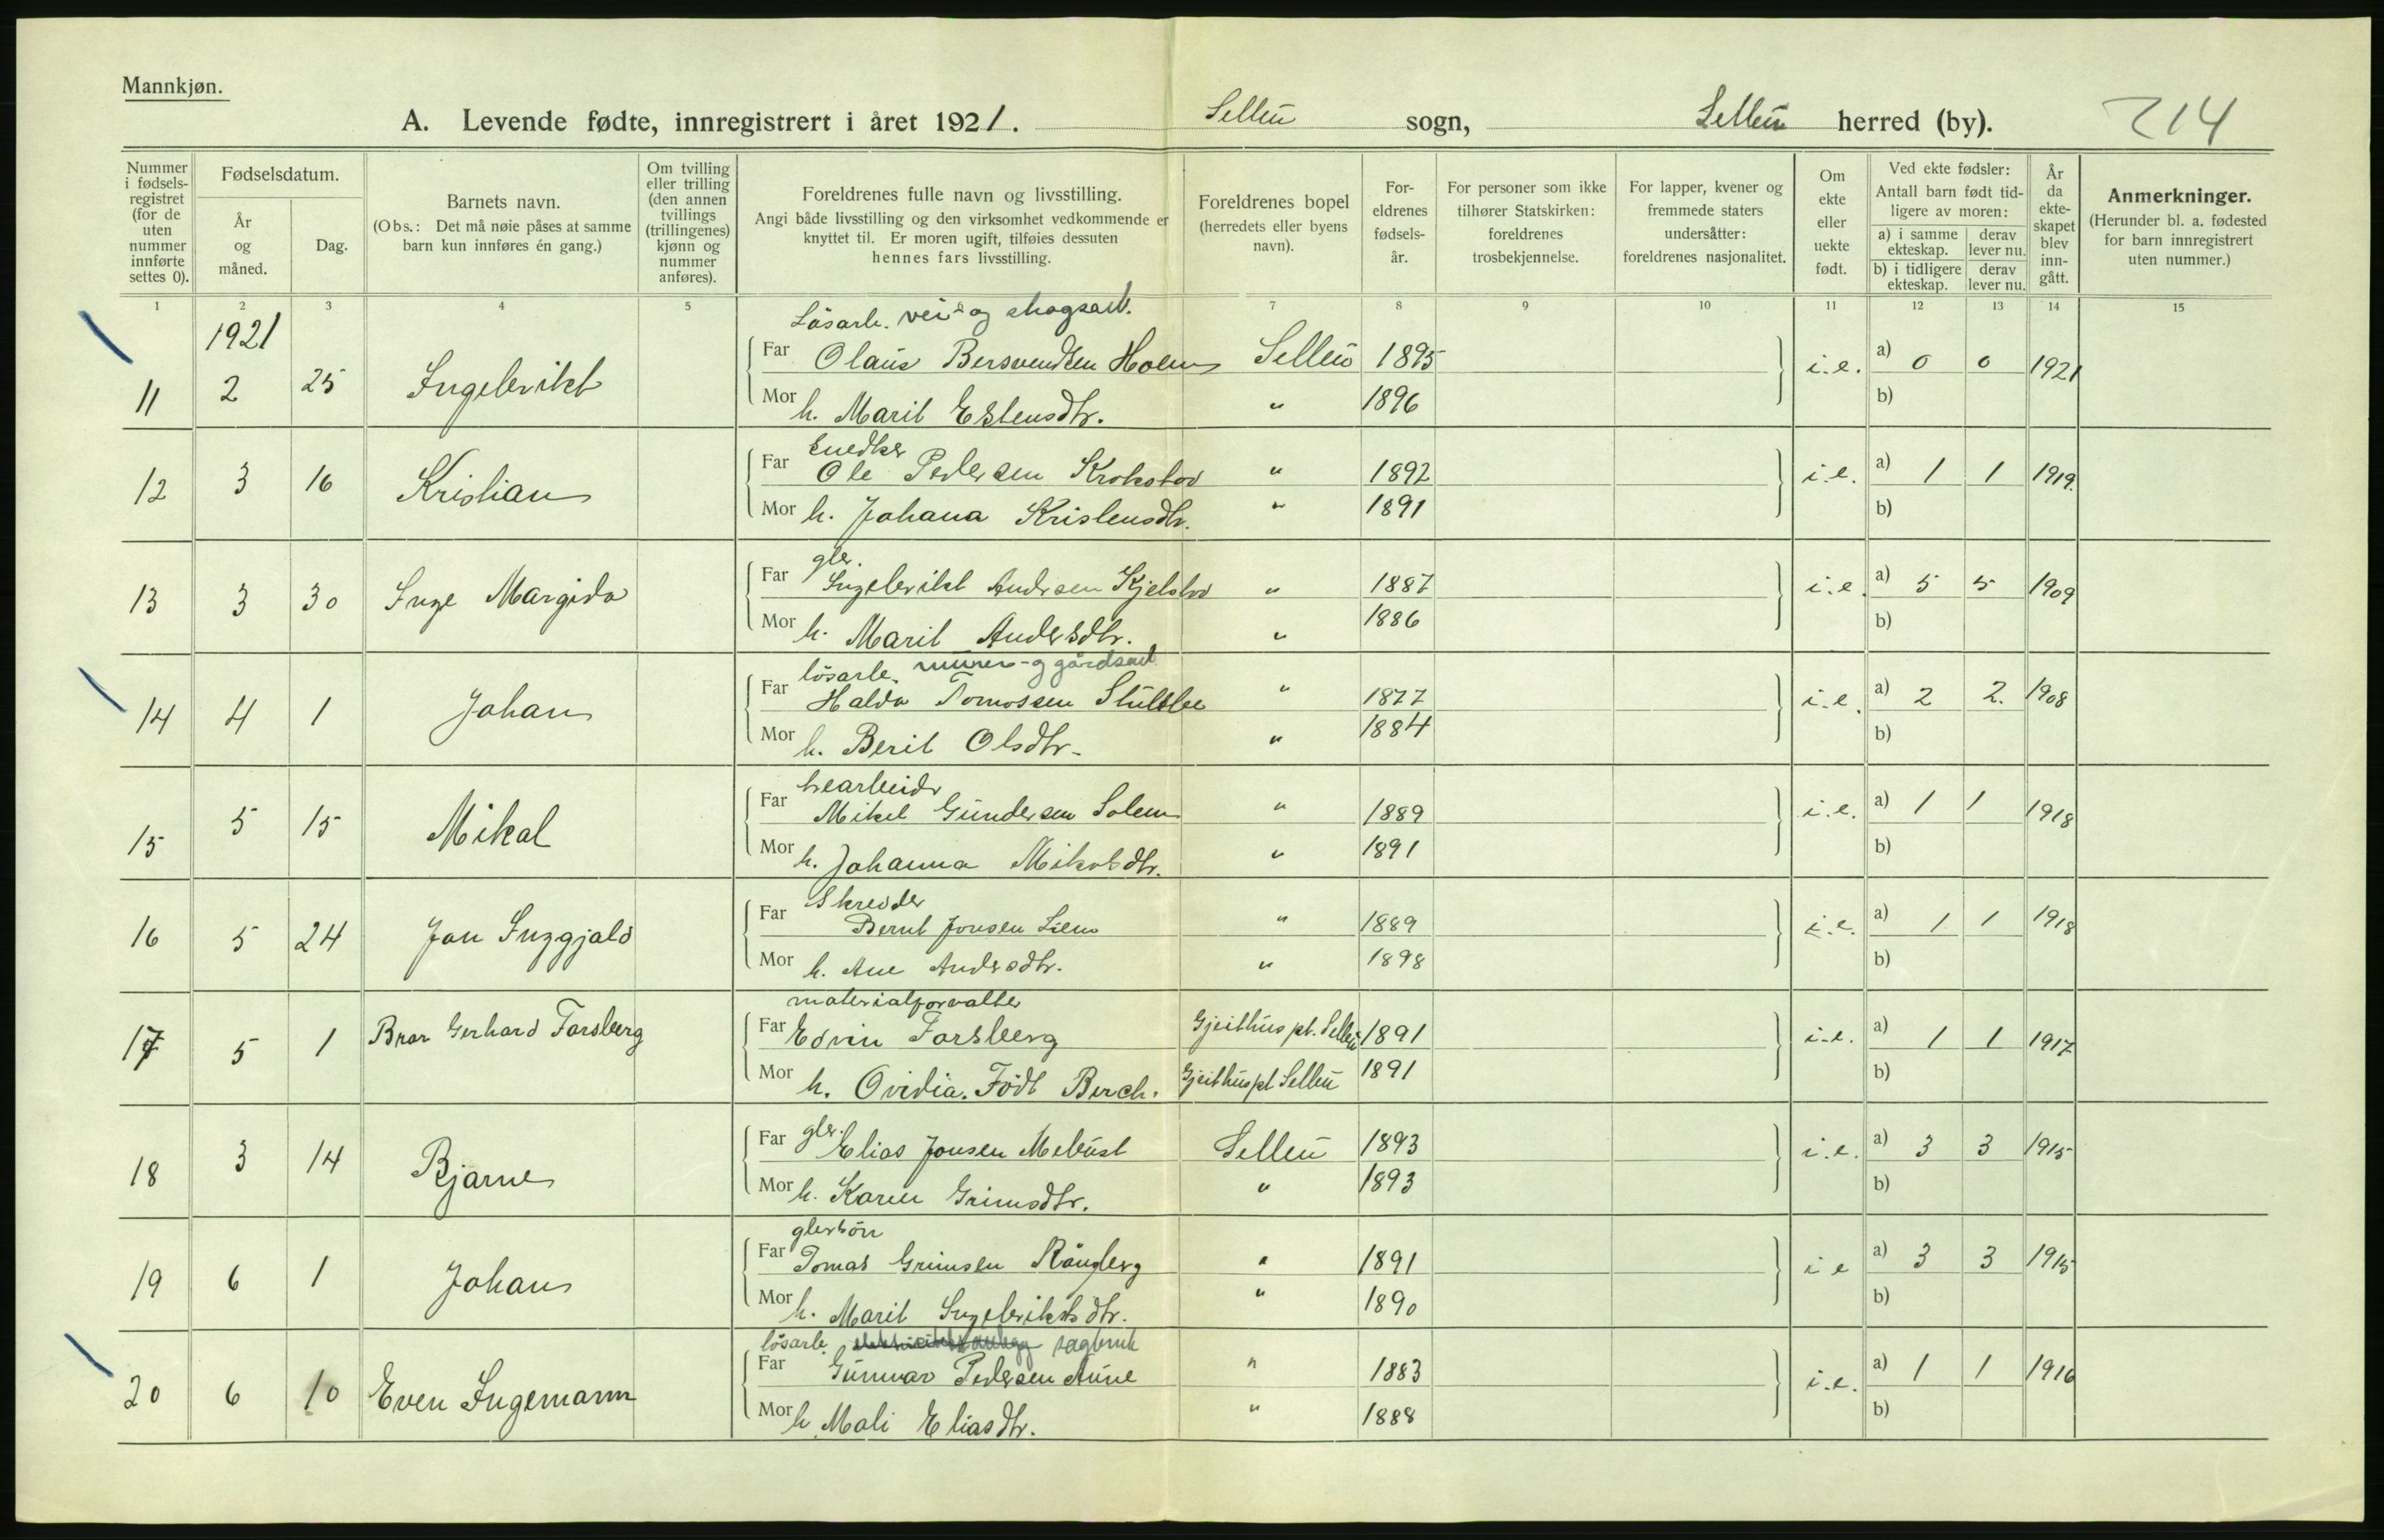 Mannkjøn.
A. Levende fødte, innregistrert i året 1921. Selbu sogn, Selbu herred (by). 214
Nummer i fødsels-registret (for de uten nummer innførte settes 0).
Fødselsdatum.
År og måned.
Dag.
Barnets navn.
(Obs.: Det må nøie påses at samme barn kun innføres én gang.)
Om tvilling eller trilling (den annen tvillings (trillingenes) kjønn og nummer anføres).
Foreldrenes fulle navn og livsstilling.
Angi både livsstilling og den virksomhet vedkommende er knyttet til. Er moren ugift, tilføies dessuten hennes fars livsstilling.
Foreldrenes bopel (herredets eller byens navn).
For-eldrenes fødsels-år.
For personer som ikke tilhører Statskirken: foreldrenes trosbekjennelse.
For lapper, kvener og fremmede staters undersåtter: foreldrenes nasjonalitet.
Om ekte eller uekte født.
Ved ekte fødsler: Antall barn født tid-ligere av moren:
a) i samme ekteskap. derav lever nu.
b) i tidligere ekteskap. derav lever nu.
År da ekte-skapet blev inn-gått.
Anmerkninger.
(Herunder bl. a. fødested for barn innregistrert uten nummer.)
1 2 3 4 5 7 8 9 10 11 12 13 14 15
1921
Løsarb. vei- og skogsarb.
11 2 25 Ingebrikt Far Olaus Bersvendsen Holem Selbu 1895 i.e. a) 0 0 1921
Mor h. Marit Estensdtr. " 1896 b)
snedker
12 3 16 Kristian Far Ole Pedersen Krokstad " 1892 i.e. a) 1 1 1919.
Mor h. Johana Kristensdtr. " 1891 b)
gbr.
13 3 30 Inge Margido Far Ingebrikt Andersen Kjelstad " 1887 i.e. a) 5 5 1909
Mor h. Marit Andersdtr. " 1886 b)
løsarb. murer- og gårdsarb.
14 4 1 Johan Far Haldo Tomossen Slulsbe " 1877 i.e. a) 2 2. 1908
Mor h. Berit Olsdtr. " 1884 b)
15 5 15 Mikal Far Mikel Gundersen Solem " 1889 i.e. a) 1 1 1918
Mor h. Johanna Mikalsdtr. " 1891 b)
Skredder
16 5 24 Jon Inggjald Far Bernt Jonsen Lien " 1889 i.e. a) 1 1 1918
Mor h. Ane Andersdtr. " 1898 b)
materialforvalter
17 5 1 Bror Gerhard Forsberg Far Edvin Forsberg Gjeithus pt. Selbu 1891 i.e. a) 1 1 1917
Mor h. Ovidia. Født Berch. Gjeithus pt Selbu 1891 b)
18 3 14 Bjarne Far gbr. Elias Jonsen Mebust Selbu 1893 i.e. a) 3 3 1915
Mor h. Karen Grimsdtr. " 1893 b)
gbrsøn
19 6 1 Johan Far Tomas Grimsen Rånberg " 1891 i e a) 3 3 1915
Mor h. Marit Ingebriktsdtr. " 1890 b)
løsarb. sagbruk
20 6 10 Even Ingemann Far Gunnar Pedersen Aune " 1883 i.e. a) 1 1 1916
Mor h Mali Eliasdtr. " 1888 b)